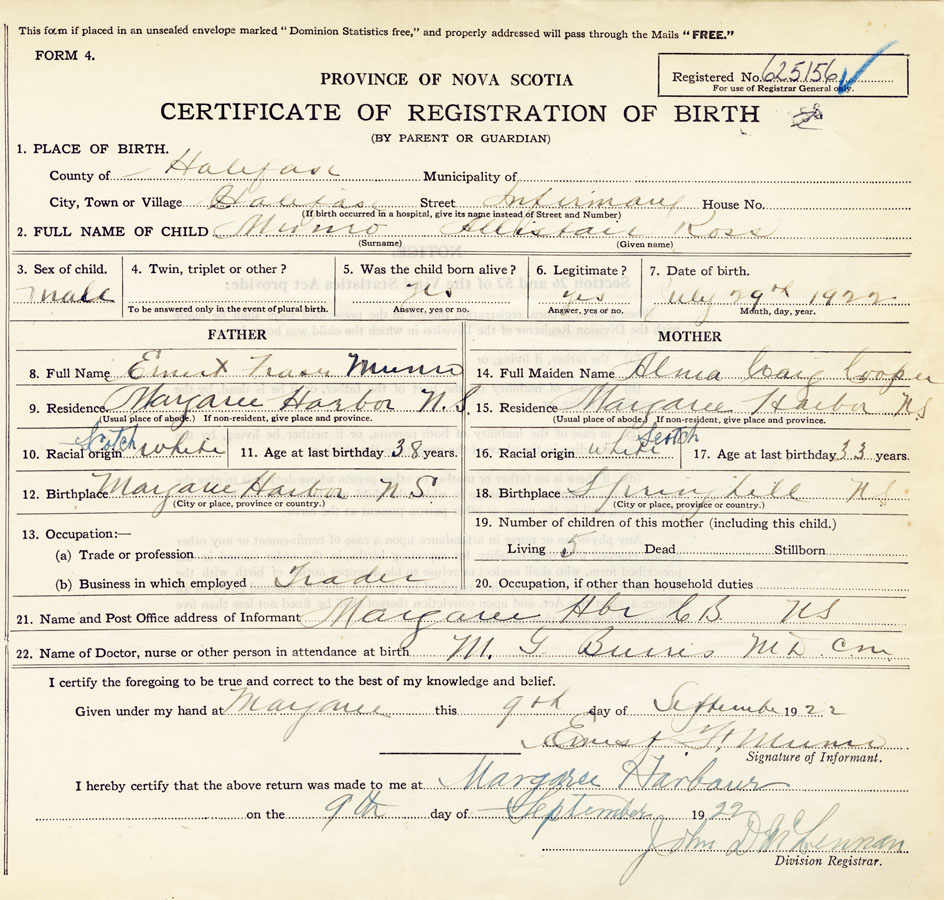 This form if placed in an unsealed envelope marked "Dominion Statistics free," and properly addressed will pass through the Mails "FREE."
FORM 4.
Registered No. 625156
For use of Registrar General only.
PROVINCE OF NOVA SCOTIA
CERTIFICATE OF REGISTRATION OF BIRTH
(BY PARENT OR GUARDIAN)
1. PLACE OF BIRTH.
County of Halifax Municipality of
City, Town or Village Halifax Street Infirmary House No.
(If birth occurred in a hospital, give its name instead of Street and Number)
2. FULL NAME OF CHILD Munro Allistair Ross
(Surname) (Given name)
3. Sex of child. 4. Twin, triplet or other? 5. Was the child born alive? 6. Legitimate? 7. Date of birth.
male yes yes July 29th 1922
To be answered only in the event of plural birth. Answer, yes or no. Answer, yes or no. Month, day, year.
FATHER MOTHER
8. Full Name Ernest Fraser Munro 14. Full Maiden Name Alma Craig Cooper
9. Residence Margaree Harbor N.S. 15. Residence Margaree Harbor NS
(Usual place of abode.) If non-resident, give place and province. (Usual place of abode.) If non-resident, give place and province.
Scotch Scotch
10. Racial origin white 11. Age at last birthday 38 years. 16. Racial origin white 17. Age at last birthday 33 years.
12. Birthplace Margaree Harbor N S 18. Birthplace Springhill NS
(City or place, province or country.) (City or place, province or country.)
13. Occupation:— 19. Number of children of this mother (including this child.)
(a) Trade or profession Living 5 Dead Stillborn
(b) Business in which employed Trader 20. Occupation, if other than household duties
21. Name and Post Office address of Informant Margaree Hbr CB NS
22. Name of Doctor, nurse or other person in attendance at birth M. G Burris MD. C.M.
I certify the foregoing to be true and correct to the best of my knowledge and belief.
Given under my hand at Margaree this 9th day of September 1922
Ernest F. Munro
Signature of Informant.
I hereby certify that the above return was made to me at Margaree Harbour
on the 9th day of September 1922
John D McLennan
Division Registrar.